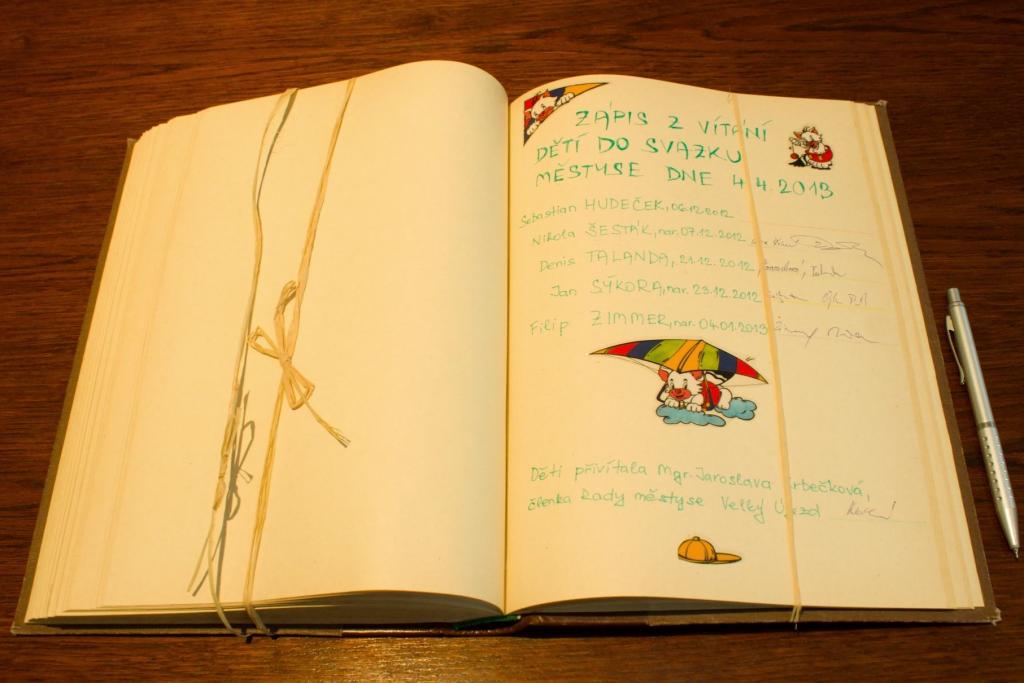 ZÁPIS Z VÍTÁNÍ
DĚTÍ DO SVAZKU
MĚSTYSE DNE 4.4.2013
Sebastian HUDEČEK, 06.12.2012
Nikola ŠESTÁK, nar. 07.12.2012
Denis TALANDA, 21.12.2012
Jan SÝKORA, nar. 23.12.2012
Filip ZIMMER, nar. 04.01.2013
Děti přivítala Mgr. Jaroslava
členka Rady městyse Velký Újezd